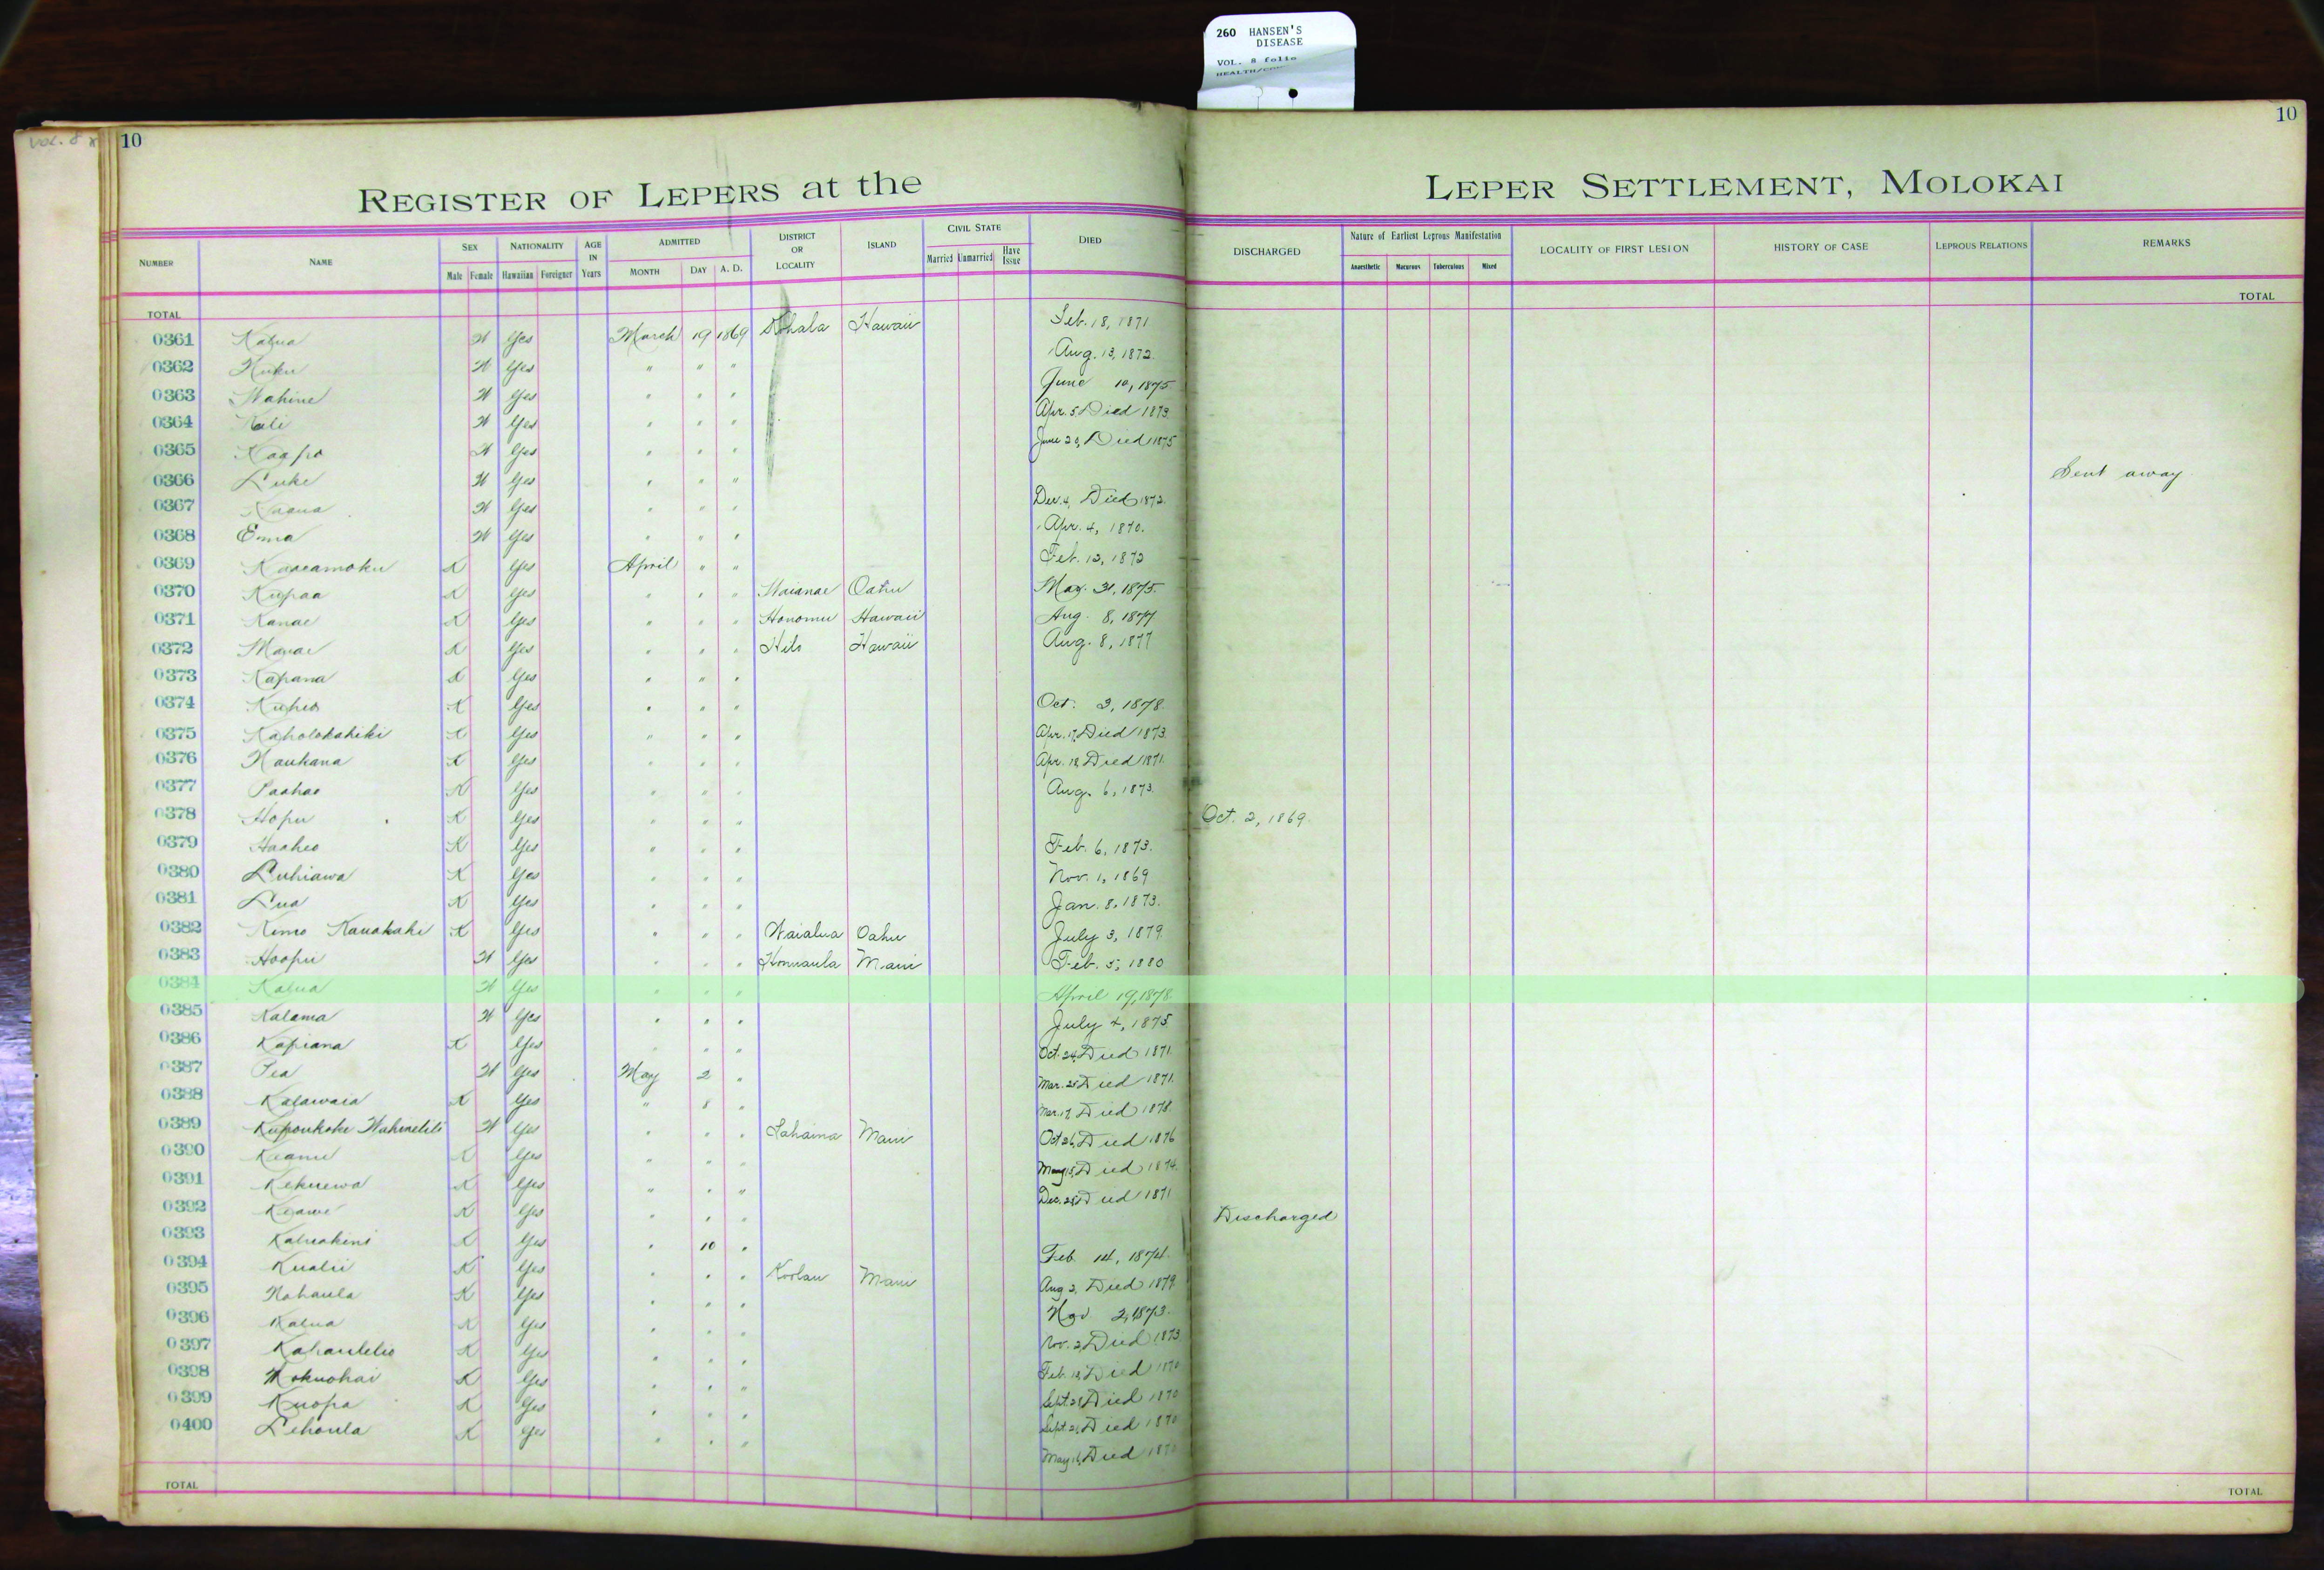 260 HANSEN'S
DISEASE
VOL. 8 folio
VOL. 8
10
10
REGISTER OF LEPERS at the LEPER SETTLEMENT, MOLOKAI
NUMBER NAME SEX NATIONALITY AGE IN Years ADMITTED DISTRICT OR LOCALITY ISLAND CIVIL STATE DIED DISCHARGED Nature of Earliest Leprous Manifestation LOCALITY OF FIRST LESION HISTORY OF CASE LEPROUS RELATIONS REMARKS
Male Female Hawaiian Foreigner MONTH DAY A. D. Married Unmarried Have Issue Anaesthetic Macurous Tuberculous Mixed
TOTAL TOTAL
0361 Kalua W Yes March 19 1869 Kohala Hawaii Feb. 18, 1871
0362 W Yes " " " Aug. 13, 1872.
0363 Wahine W Yes " " " June 10, 1875
0364 Kali W Yes " " " Apr. 5 Died 1873.
0365 Kaapo W Yes " " " June 29, Died 1875
0366 Luke W Yes " " " Sent away
0367 W Yes " " " Dec. 4, Died 1872.
0368 Emma W Yes " " " Apr. 4, 1870.
0369 Kaaeamoku K Yes April " " Feb. 12, 1872
0370 Kupaa K Yes " " " Waianae Oahu May. 31, 1875.
0371 Kanae K Yes " " " Honomu Hawaii Aug. 8, 1877
0372 K Yes " " " Hilo Hawaii Aug. 8, 1877
0373 Kapana K Yes " " "
0374 Kuheo K Yes " " " Oct. 3, 1878.
0375 Kaholokahiki K Yes " " " Apr. 17, Died 1873.
0376 Naukana K Yes " " " Apr. 18, Died 1871.
0377 Paahao K Yes " " " Aug. 6, 1873.
0378 Hopu K Yes " " " Oct. 2, 1869.
0379 Haaheo K Yes " " " Feb. 6, 1873.
0380 Luhiawa K Yes " " " Nov. 1, 1869
0381 Lua K Yes " " " Jan. 8, 1873.
0382 Kimo Kauakahi K Yes " " " Waialua Oahu July 3, 1879.
0383 Hoopii W Yes " " " Honuaula Maui Feb. 5, 1880
0384 Kalua W Yes " " " April 19, 1878.
0385 Kalama W Yes " " " July 4, 1875
0386 Kapiana K Yes " " " Oct. 24, Died 1871.
0387 Pea W Yes May 2 " Mar. 25 Died 1871.
0388 Kalawaia K Yes " 8 " Mar. 17, Died 1878.
0389 W Yes " " " Lahaina Maui Oct 26, Died 1876
0390 Keanu K Yes " " " May 15, Died 1874.
0391 Kekuewa K Yes " " " Dec. Died 1871
0392 Keawe K Yes " " " Discharged
0393 Kaluakini K Yes " 10 " Feb. 14, 1874.
0394 Kualii K Yes " " " Koolau Maui Aug 2, Died 1879.
0395 Nohaula K Yes " " " Nov 2, 1873.
0396 Kalua K Yes " " " Nov. 2, Died 1873
0397 Kahaulelio K Yes " " " Feb. 18, Died 1870
0398 Mokuohai K Yes " " " Sept. Died 1870
0399 Kuopa K Yes " " " Sept. Died 1870
0400 Lehoula K Yes " " " May 16, Died 1870
TOTAL TOTAL